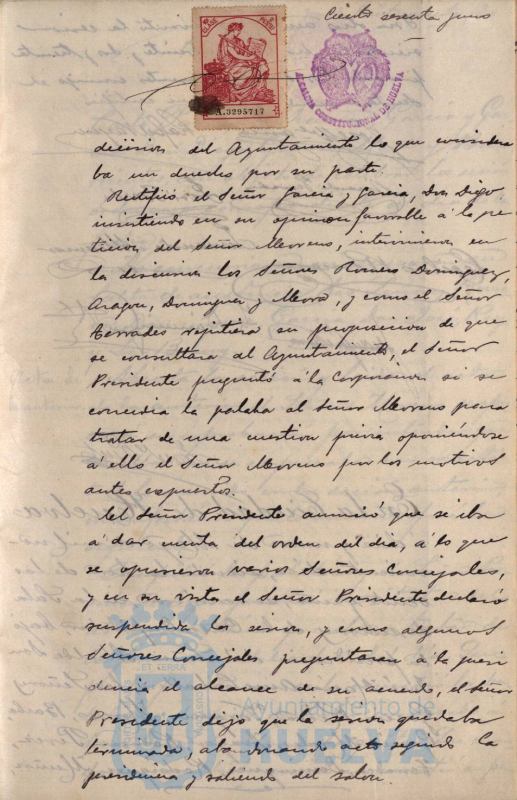 Ciento sesenta y uno
A.3295717
ALCALDIA CONSTITUCIONAL DE HUELVA
decision del Ayuntamiento lo que considera
ba un derecho por su parte.
Rectificó el Señor Garcia y Garcia, Don Diego
insistiendo en su opinion favorable á la pe-
ticion del Señor Moreno, intervinieron en
la discusion los Señores Romero Dominguez,
Aragon, Dominguez y Mora, y como el Señor
Terrades repitiera su proposicion de que
se consultara al Ayuntamiento, el Señor
Presidente preguntó á la Corporacion si se
concedia la palabra al Señor Moreno para
tratar de una cuestion previa oponiéndose
á ello el Señor Moreno por los motivos
antes expuestos.
El Señor Presidente anunció que se iba
á dar cuenta del orden del dia, á lo que
se opusieron varios Señores Concejales,
y en su vista el Señor Presidente declaró
suspendida la sesion, y como algunos
Señores Concejales preguntaran á la presi
dencia el alcance de su acuerdo, el Señor
Presidente dijo que la sesion quedaba
terminada, abandonando acto seguido la
presidencia y saliendo del salon.
Ayuntamiento de
HUELVA